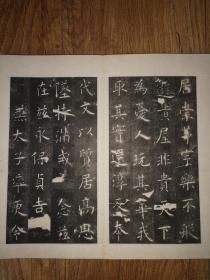 居崇茅宇樂不般
遊黃屋非貴天下
為憂人玩其華我
取其實還淳反本
代文以質居高思
墜持滿戒念茲
在茲永保貞吉
兼太子率更令